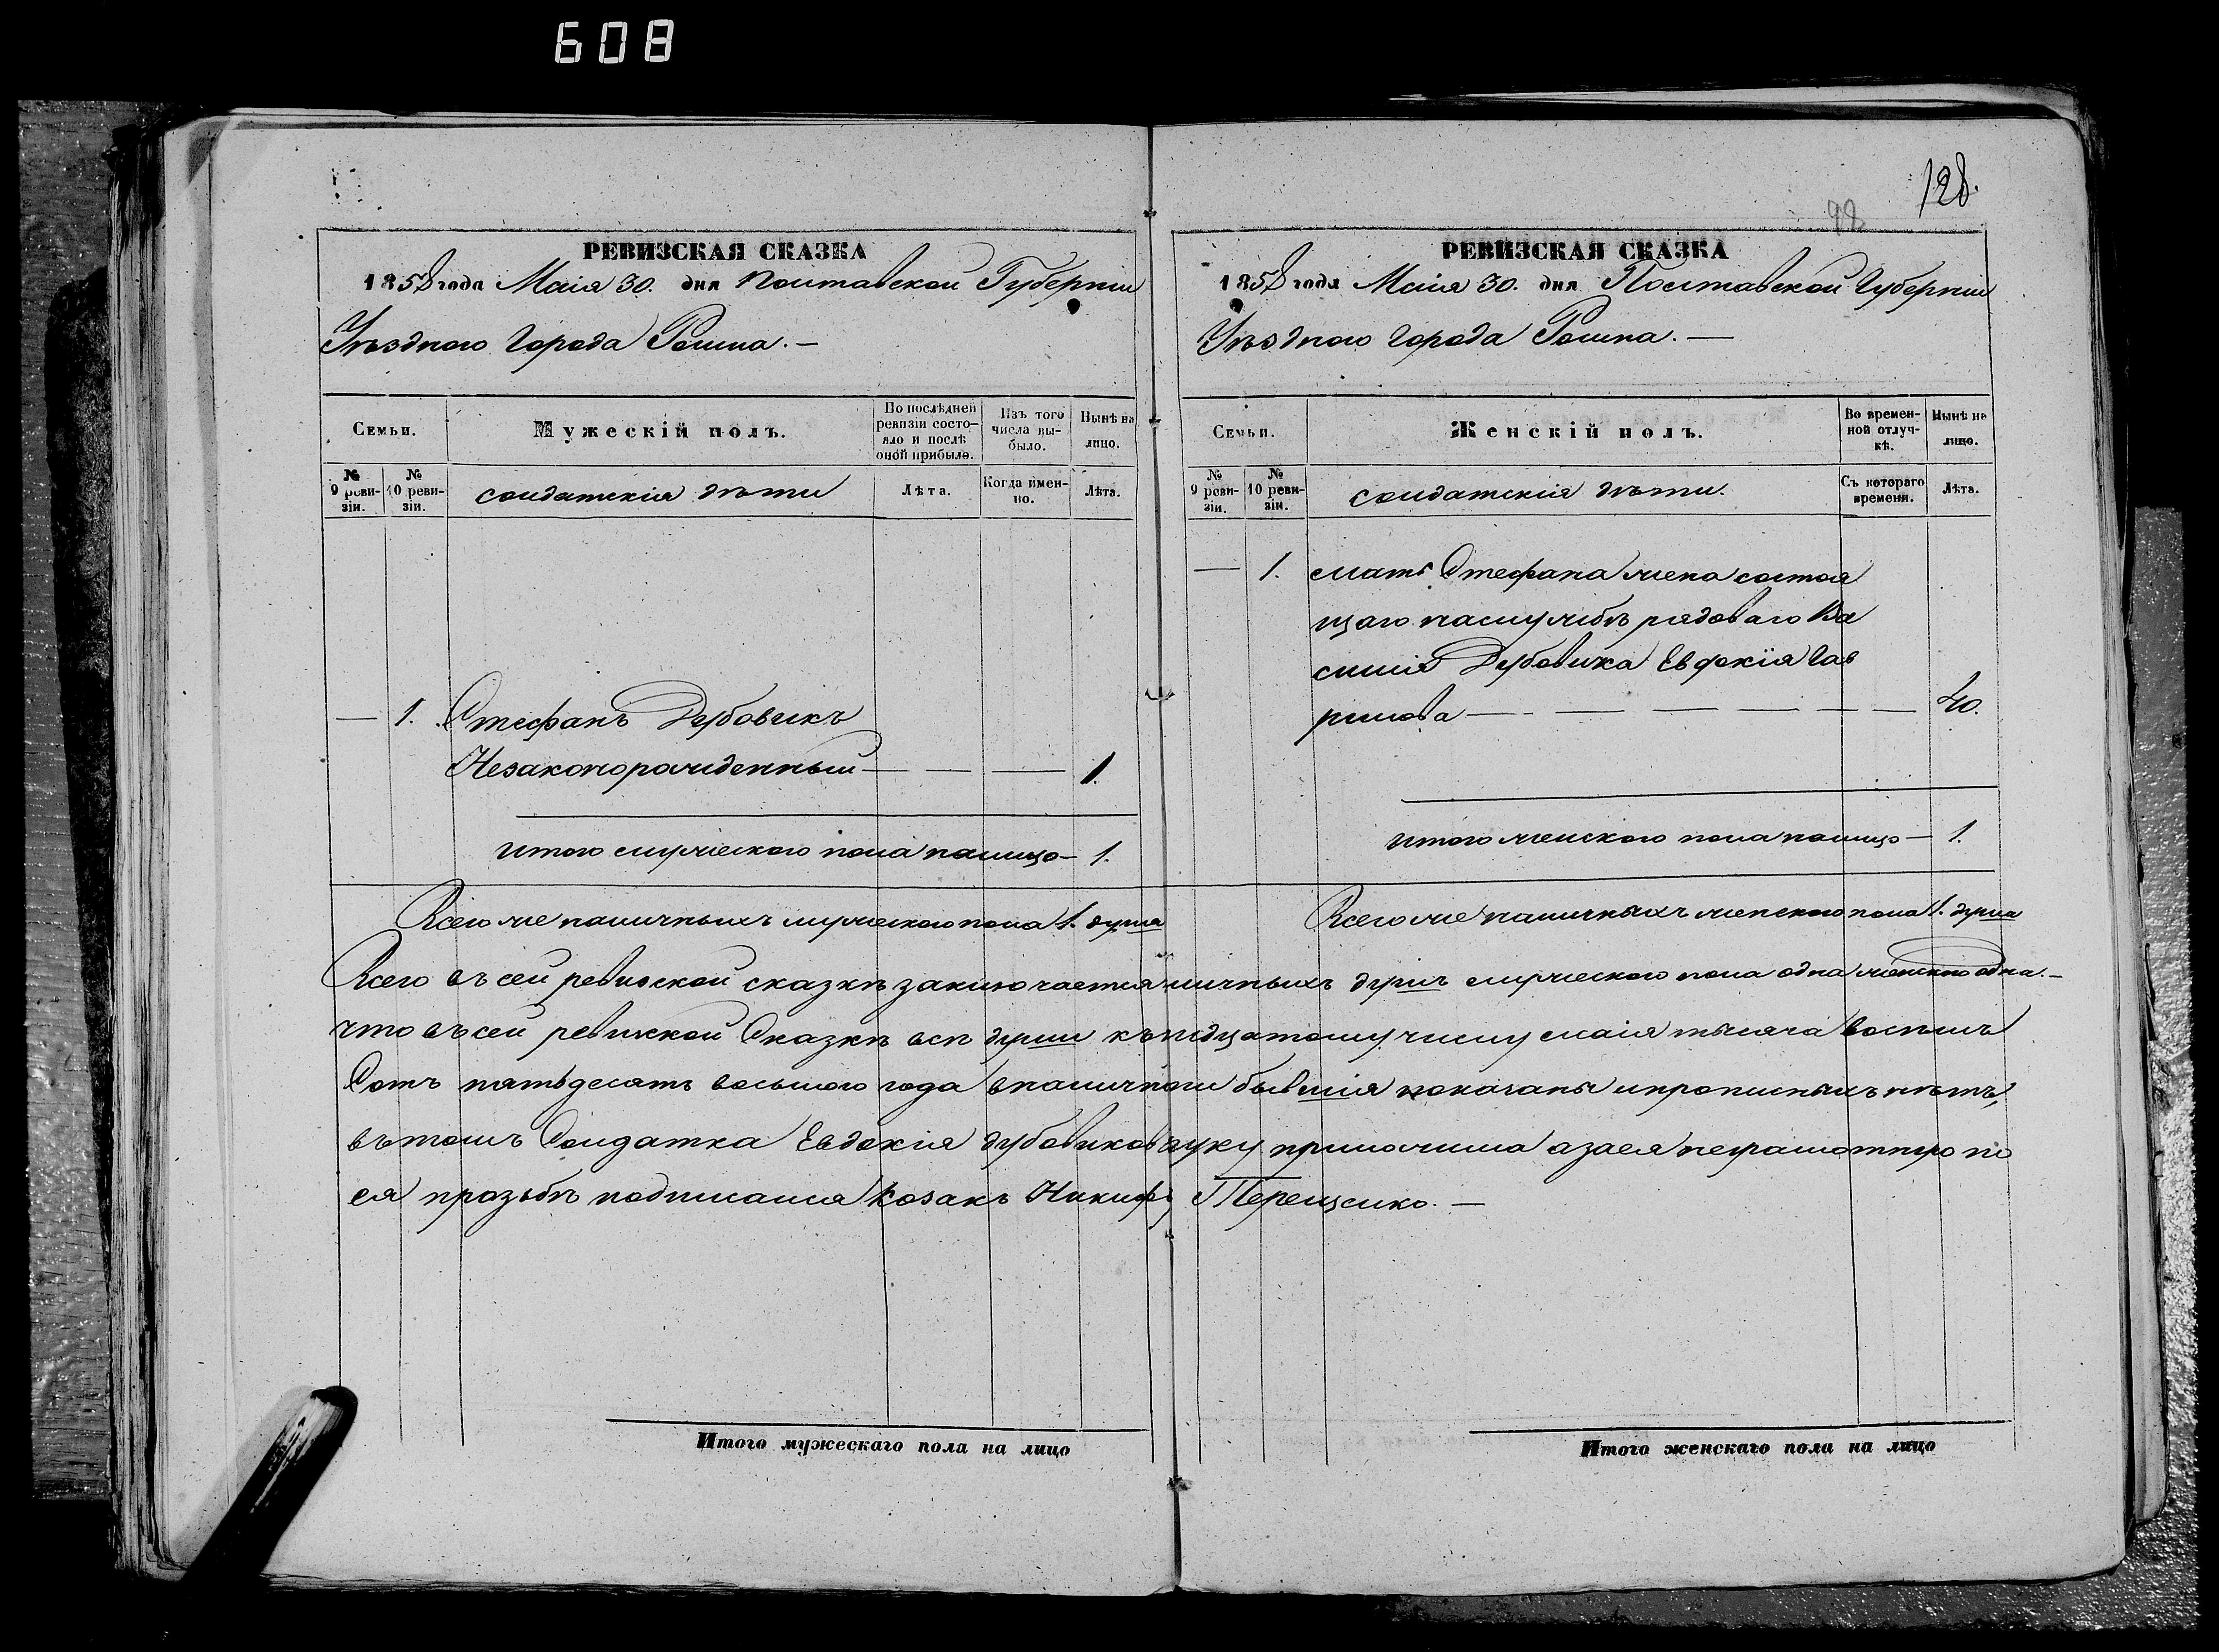 608
128.
98
РЕВИЗСКАЯ СКАЗКА
1858 года Маія 30. дня Полтавской Губерніи
Уѣзднаго Города Ромна. —
Семьи.
Мужескій полъ.
По послѣдней ревизіи состояло и послѣ оной прибыло.
Изъ того числа выбыло.
Нынѣ на лицо.
№ 9 ревизіи.
№ 10 ревизіи.
солдатскія дѣти
Лѣта.
Когда именно.
Лѣта.
— 1. Стефанъ Дубовикъ
Незаконорожденный — — — 1.
Итого мужескаго пола налицо — 1.
Всего же наличныхъ мужескаго пола 1. душа
РЕВИЗСКАЯ СКАЗКА
1858 года Маія 30. дня Полтавской Губерніи
Уѣзднаго Города Ромна. —
Семьи.
Женскій полъ.
Во временной отлучкѣ.
Нынѣ на лицо.
№ 9 ревизіи.
№ 10 ревизіи.
солдатскія дѣти.
Съ котораго времени.
Лѣта.
— 1. мать Стефана жена состоя
щаго наслужбѣ рядоваго Ва
силія Дубовика Евдокія Гав
рилова — — — — — — 40.
Итого женского пола налицо — 1.
Всего же наличныхъ женского пола 1. душа
Всего въ сей ревизской сказкѣ заключается личныхъ душъ мужеского пола одна женского одна. —
что въ сей ревизской Сказкѣ всѣ души къ маія тысяча восемь
Сотъ пятьдесятъ восьмого года вналичноси бывшія показаны ипрописныхъ нѣтъ,
вътомъ Солдатка Евдокія Дубовикова руку приложила азаея неграмотную по
ея прозьбѣ подписался Козакъ Никифъ Терещенко. —
Итого мужескаго пола на лицо
Итого женскаго пола на лицо